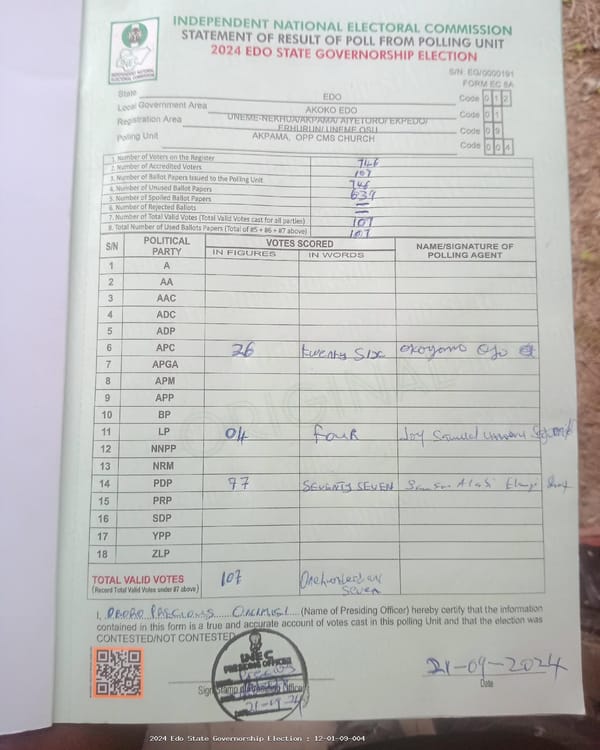 INDEPENDENT NATIONAL ELECTORAL COMMISSION
STATEMENT OF RESULT OF POLL FROM POLLING UNIT
2024 EDO STATE GOVERNORSHIP ELECTION
S/N: EG/0000191
FORM EC 8A
State EDO Code 0 1 2
Local Government Area AKOKO EDO Code 0 1
Registration Area UNEME-NEKHUA/AKPAMA/ AIYETORO/ EKPEDO/ ERHURUN/ UNEME OSU Code 0 9
Polling Unit AKPAMA, OPP CMS CHURCH Code 0 0 4
1. Number of Voters on the Register 746
2. Number of Accredited Voters 107
3. Number of Ballot Papers Issued to the Polling Unit 746
4. Number of Unused Ballot Papers 639
5. Number of Spoiled Ballot Papers —
6. Number of Rejected Ballots —
7. Number of Total Valid Votes (Total Valid Votes cast for all parties) 107
8. Total Number of Used Ballots Papers (Total of #5 + #6 + #7 above) 107
S/N POLITICAL PARTY VOTES SCORED NAME/SIGNATURE OF POLLING AGENT
IN FIGURES IN WORDS
1 A
2 AA
3 AAC
4 ADC
5 ADP
6 APC 26 twenty Six Okoyomo Ojo
7 APGA
8 APM
9 APP
10 BP
11 LP 04 four Joy
12 NNPP
13 NRM
14 PDP 77 SEVENTY SEVEN
15 PRP
16 SDP
17 YPP
18 ZLP
TOTAL VALID VOTES 107 One hundred and Seven
(Record Total Valid Votes under #7 above)
ORIGINAL
I, PRECIOUS (Name of Presiding Officer) hereby certify that the information
contained in this form is a true and accurate account of votes cast in this polling Unit and that the election was
CONTESTED/NOT CONTESTED
INEC
PRESIDING OFFICER
21-09-24
21-09-2024
Date
2024 Edo State Governorship Election : 12-01-09-004